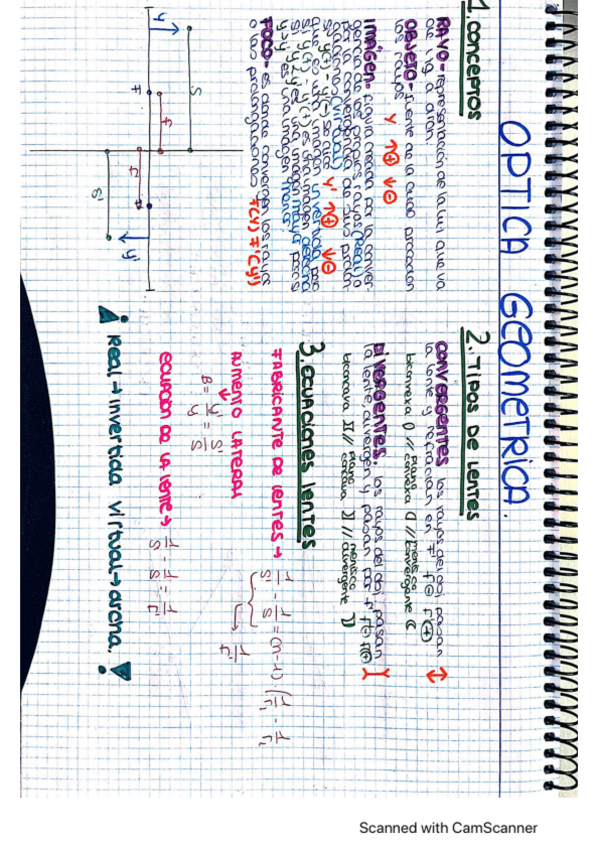 OPTICA GEOMETRICA.
1. CONCEPTOS
RAYO- representación de la luz que va
de izq a drch.
OBJETO- fuente de la cual proceden
los rayos. y ↑⊕ ↓⊖
IMAGEN- figura creada por la conver
gencia de los propios rayos (Real) o
por la convergencia de sus prolon
gaciones (virtual) y' ↑⊕ ↓⊖
y(+) y(-)
que es una imagen invertida pero
si y(+) y(+) es una imagen derecha
si y'>y es una imagen mayor pero si
y>y' es una imagen menor.
FOCO- es donde convergen los rayos
o sus prolongaciones F(y) F'(y')
y
S
F
f
f'
F'
S'
y'
2. TIPOS DE LENTES
CONVERGENTES los rayos del obj pasan
la lente y refractan en F' f⊖ f'⊕
biconvexa () // plano convexa // menisco convergente
DIVERGENTES. los rayos del obj pasan
la lente, divergen y pasan por F
bicóncava // plano cóncava // menisco divergente
3. ECUACIONES LENTES
FABRICANTE DE LENTES → 1/S' - 1/S = (n-1) · (1/r₁ - 1/r₂)
1/f'
AUMENTO LATERAL
B = y'/y = S'/S
ECUACION DE LA LENTE → 1/S' - 1/S = 1/f'
¡ Real → invertida virtual → drcha. !
Scanned with CamScanner